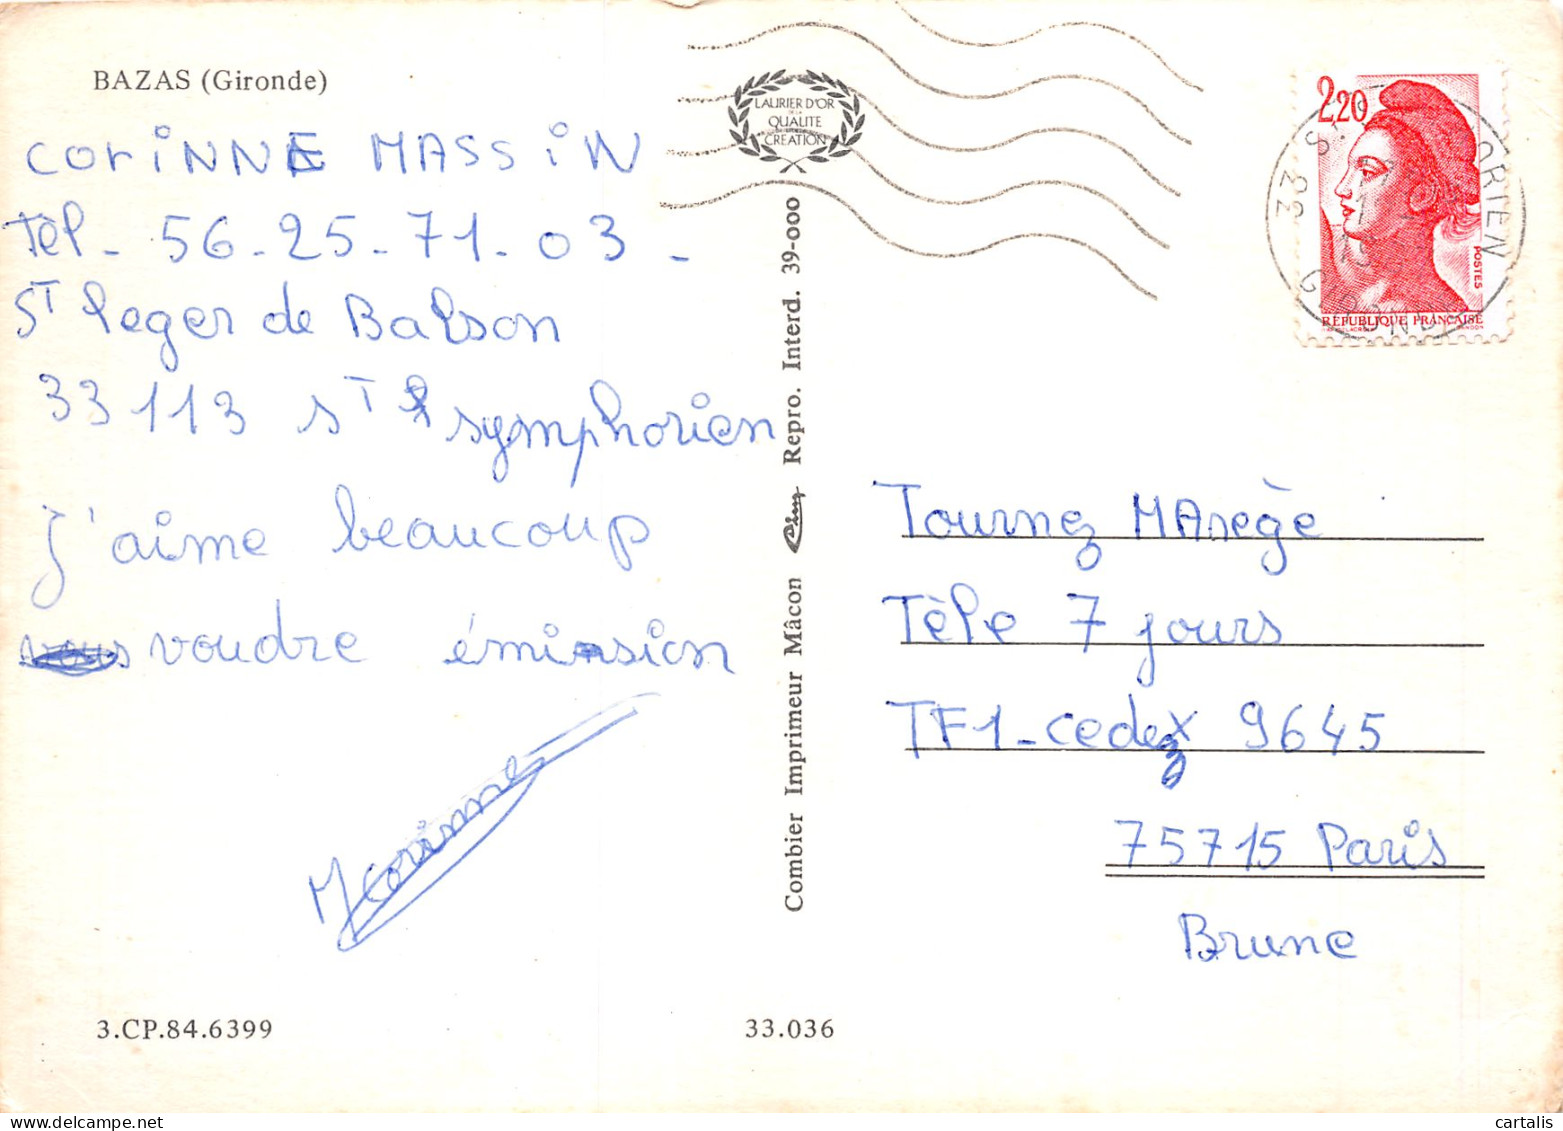 BAZAS (Gironde)
CoriNNE MASSiN
Tèl - 56-25-71-03-
ST leger de Balson
33113 ST symphorien
J'aime beaucoup
vous voudre émission
M Corinne
3.CP.84.6399
LAURIER D'OR
DE LA
QUALITE
CREATION
Combier Imprimeur Mâcon Cim Repro. Interd. 39-000
33.036
2,20
POSTES
RÉPUBLIQUE FRANÇAISE
33 ST SYMPHORIEN
GIRONDE
Tournez MAnège
Tèle 7 jours
TF1-cedex 9645
75715 Paris
Brune
cartalis